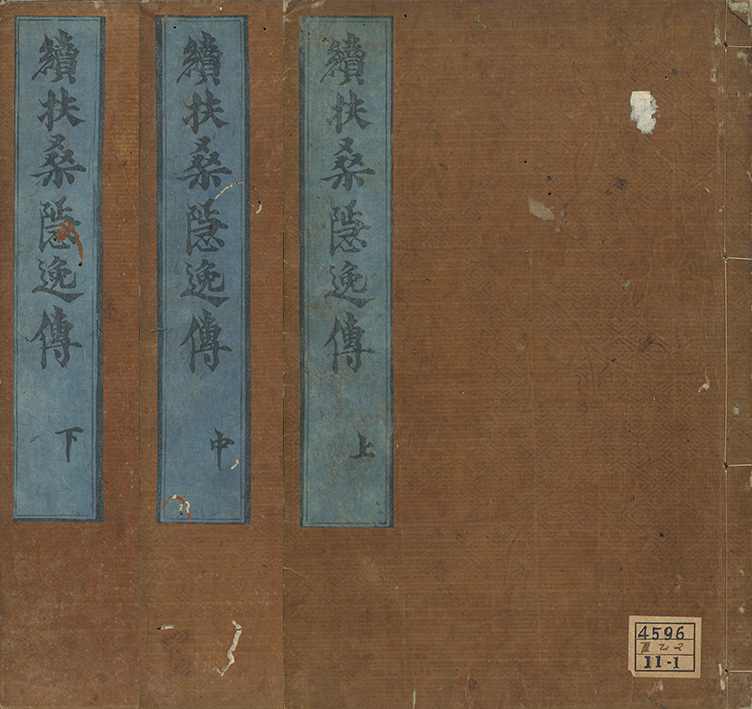 續扶桑隠逸傳 上
續扶桑隠逸傳 中
續扶桑隠逸傳 下
4596
11-1